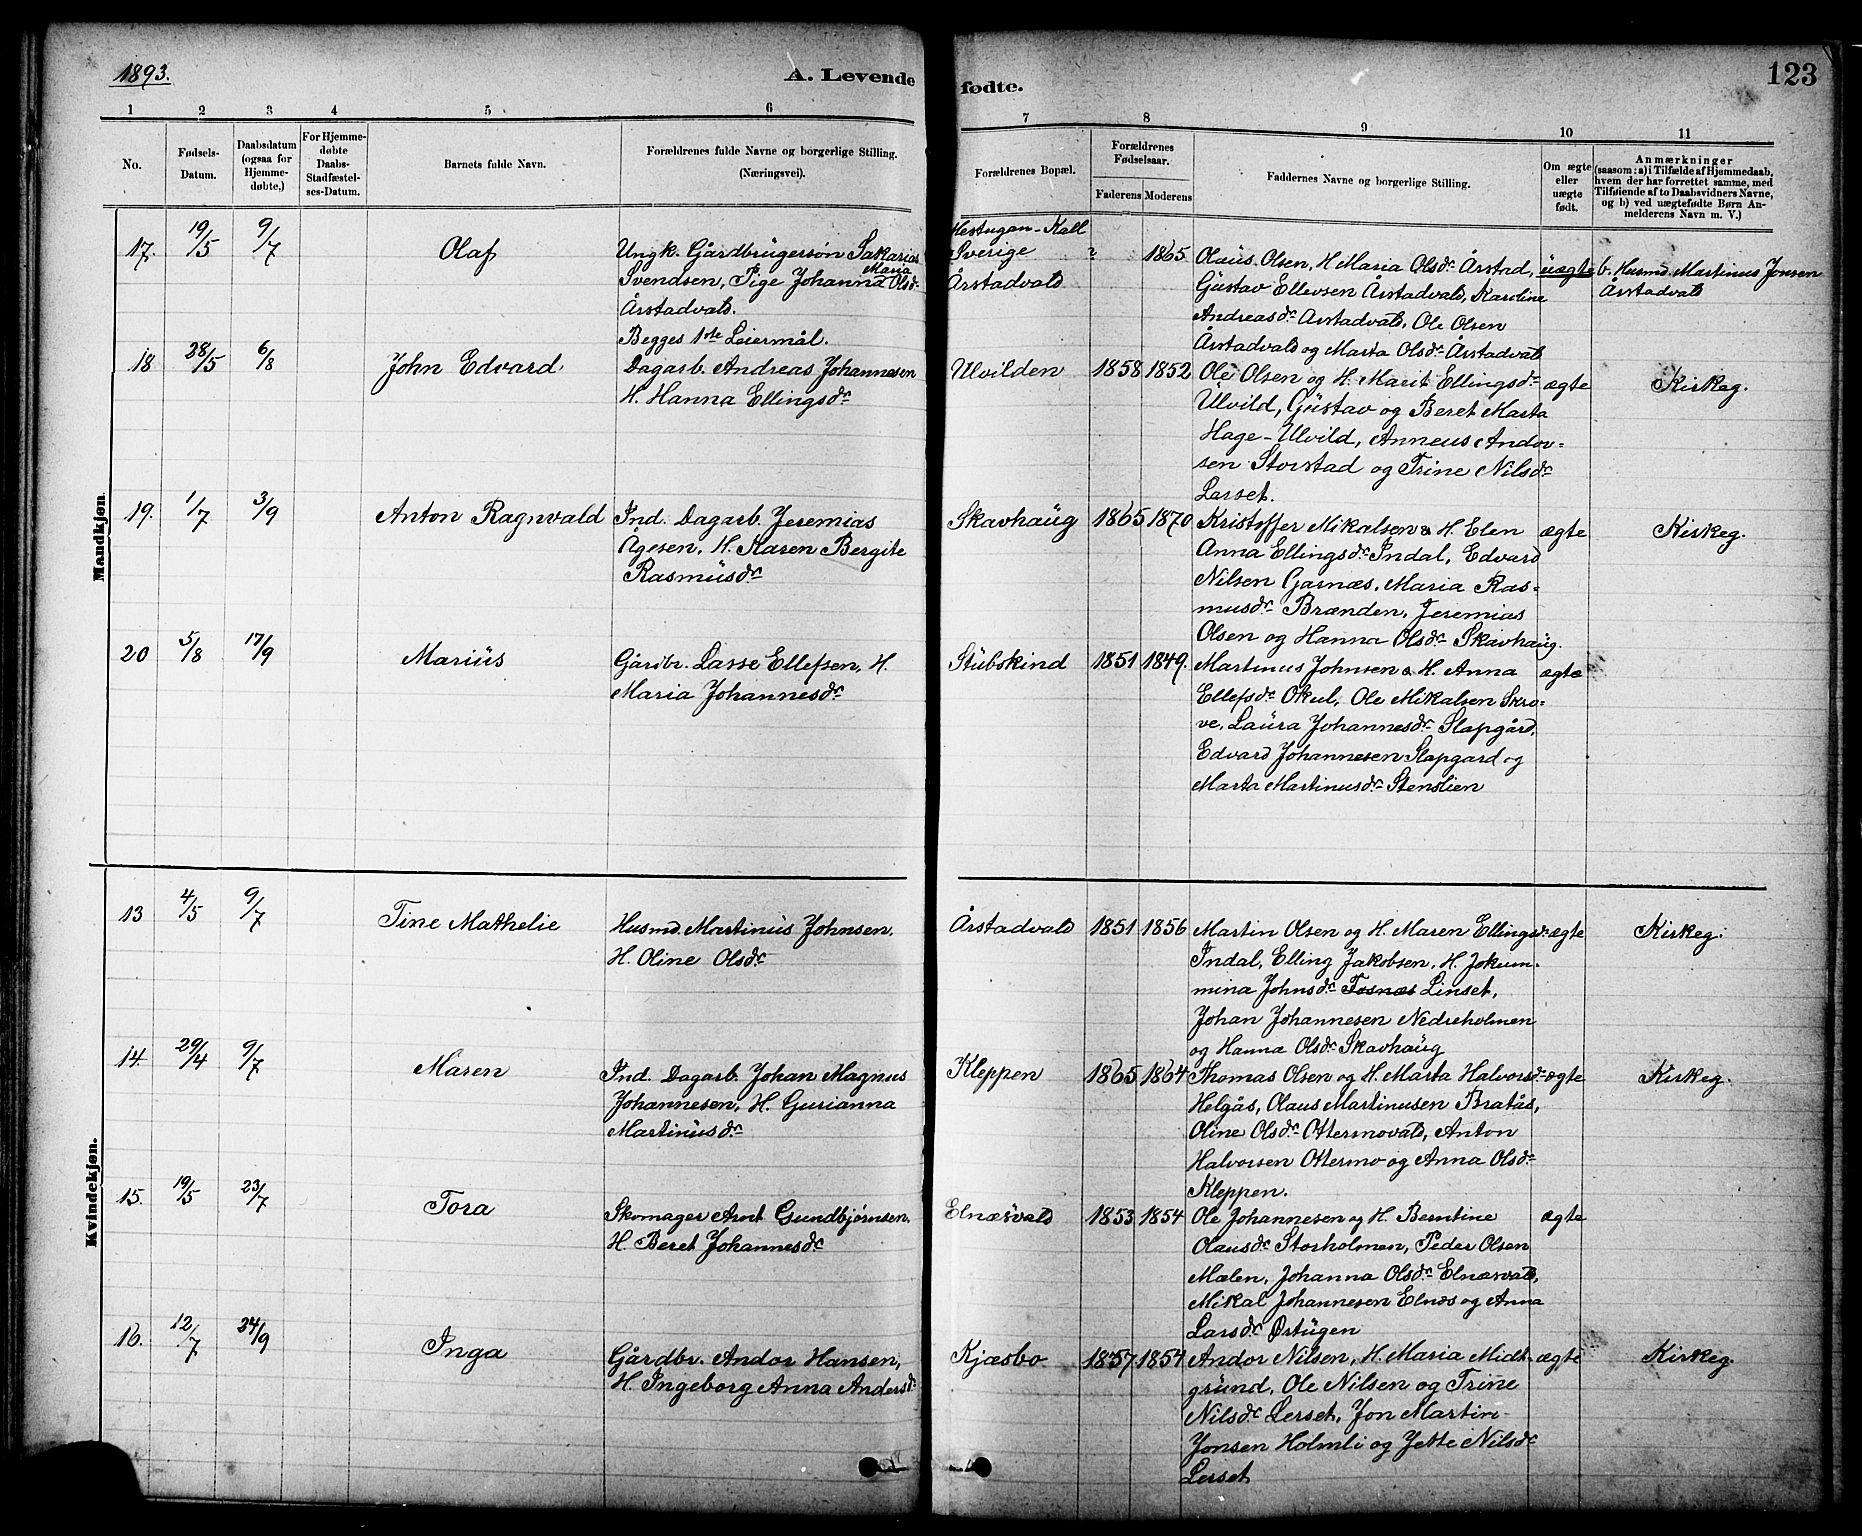 1893.
A. Levende
fødte.
123
1 2 3 4 5 6
7 8 9 10 11
No.
Fødsels-
Datum.
Daabsdatum
(ogsaa for
Hjemme-
døbte,)
For Hjemme-
døbte
Daabs-
Stadfæstel-
ses-Datum.
Barnets fulde Navn.
Forældrenes fulde Navne og borgerlige Stilling.
(Næringsvei).
Forældrenes Bopæl.
Forældrenes
Fødselsaar.
Faderens Moderens
Faddernes Navne og borgerlige Stilling.
Om ægte
eller
uægte
født.
Anmærkninger
(saasom: a) i Tilfælde af Hjemmedaab,
hvem der har forrettet samme, med
Tilføiende af to Daabsvidners Navne,
og b) ved uægtefødte Børn An-
melderens Navn m. V.)
Mandkjøn.
17. 19/5 9/7 Olaf
Ungk. Gårdbrugersøn Sakarias
Svendsen, Pige Johanna Maria Olsdr
Årstadvald.
Begges 1ste Leiermål.
Hestugan - Kall
Sverige
Årstadvald
? 1865
Olaus Olsen, H. Maria Olsdr Årstad,
Gustav Ellevsen Årstadvald, Karoline
Andreasdr Årstadvald, Ole Olsen
Årstadvald og Marta Olsdr Årstadvald
uægte
b. Husmd. Martinus Jonsen
Årstadvald
18 28/5 6/8 John Edvard
Dagarb. Andreas Johannesen
H. Hanna Ellingsdr
Ulvilden 1858 1852
Ole Olsen og H. Marit Ellingsdr
Ulvild, Gustav og Beret Marta
Hage - Ulvild, Anneus Andor-
sen Storstad og Trine Nilsdr
Larset.
ægte
Kirkeg.
19. 1/7 3/9 Anton Ragnvald
Ind. Dagarb. Jeremias
Agesen, H. Karen Bergite
Rasmusdr
Skavhaug 1865 1870
Kristoffer Mikalsen & H. Elen
Anna Ellingsdr Indal, Edvard
Nilsen Garnæs, Maria Ras-
musdr Brænden, Jeremias
Olsen og Hanna Olsdr Skavhaug.
ægte
Kirkeg.
20 5/8 17/9 Marius
Gårdbr. Lasse Ellefsen, H.
Maria Johannesdr
Stubskind 1851 1849.
Martinus Johnsen & H. Anna
Ellefsdr Okul, Ole Mikalsen Skro-
ve, Laura Johannesdr Slapgård,
Edvard Johannesen Slapgard og
Marta Martinusdr Stenslien
ægte
Kvindekjøn.
13 4/5 9/7 Tine Mathelie
Husmd. Martinus Johnsen,
H. Oline Olsdr
Årstadvald 1851 1856
Martin Olsen og H. Maren Ellingsdr
Indal, Elling Jakobsen, H. Jokum-
mina Johnsdr Tosnæs Linset,
Johan Johannesen Nedreholmen
og Hanna Olsdr Skavhaug
ægte
Kirkeg.
14. 29/4 9/7 Maren
Ind. Dagarb. Johan Magnus
Johannesen, H. Gurianna
Martinusdr
Kleppen 1865 1864
Thomas Olsen og H. Marta Halvorsdr
Helgås, Olaus Martinusen Bratås,
Oline Olsdr Ottermovald, Anton
Halvorsen Ottermo og Anna Olsdr
Kleppen.
ægte
Kirkeg.
15. 19/5 23/7 Tora
Skomager Arnt Gundbjørnsen,
H. Beret Johannesdr
Elnæsvald 1853 1854
Ole Johannesen og H. Berntine
Olausdr Storholmen, Peder Olsen
Mælen, Johanna Olsdr Elnæsvald,
Mikal Johannesen Elnæs og Anna
Larsdr Østugen
ægte
16. 12/7 24/9 Inga
Gårdbr. Andor Hansen,
H. Ingeborg Anna Andersdr
Kjæsbo 1857 1854
Andor Nilsen, H. Maria Midt-
grund, Ole Nilsen og Trine
Nilsdr Lerset, Jon Martin
Jonsen Holmli og Jette Nilsdr
Lerset
ægte
Kirkeg.